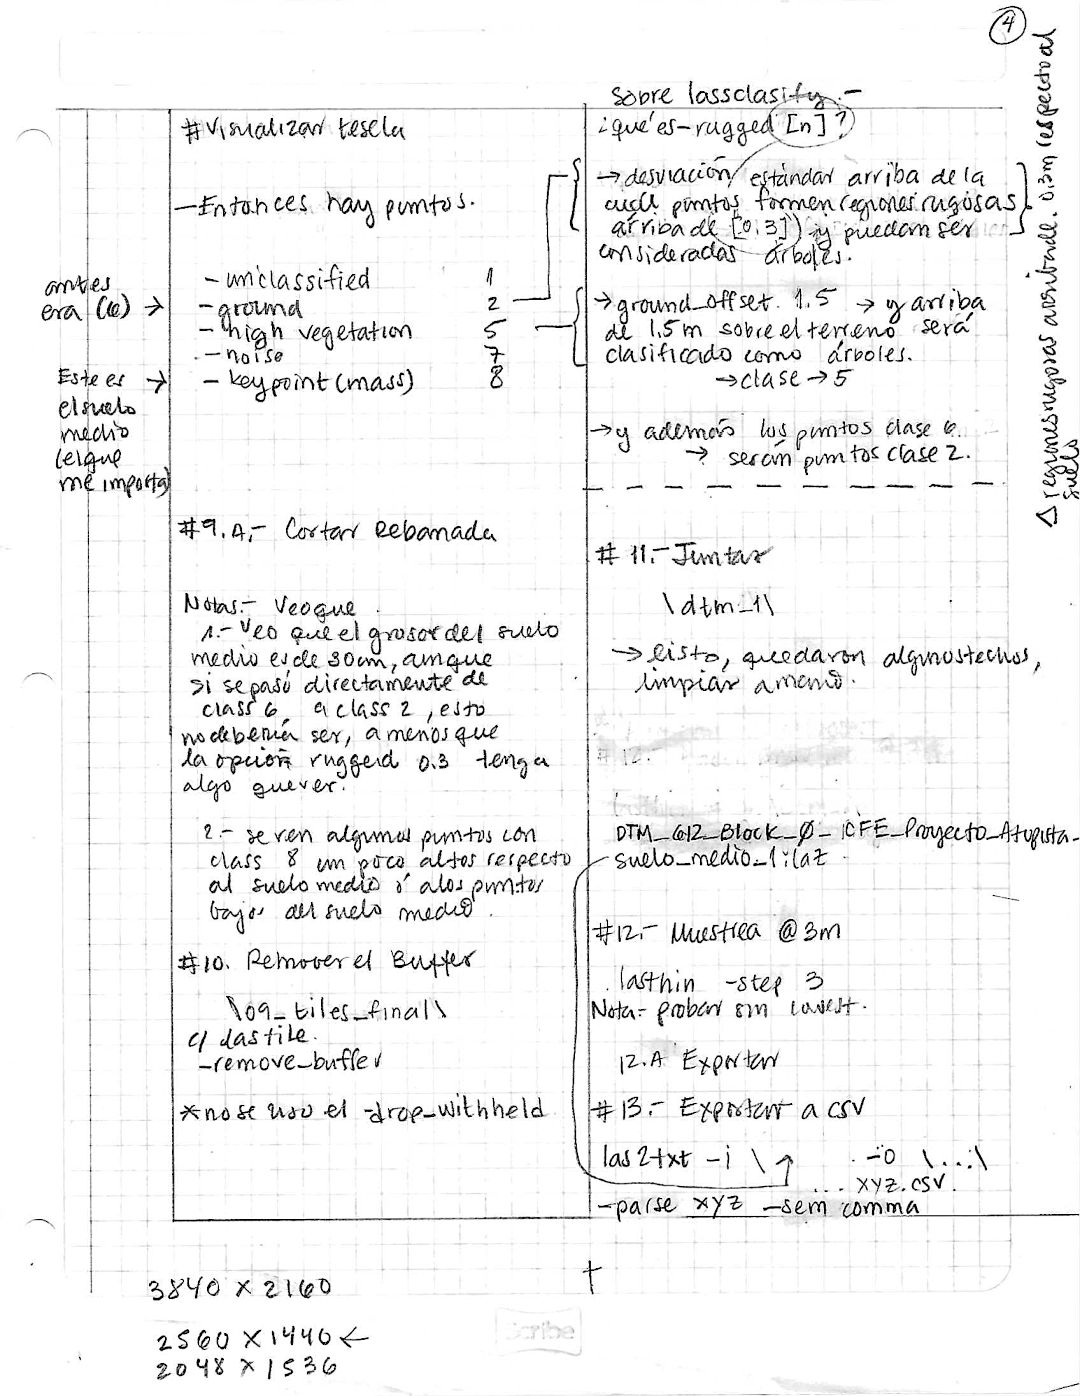 4
#Visualizar tesela
-Entonces hay puntos.
- unclassified 1
- ground 2
- high vegetation 5
- noise 7
- keypoint (mass) 8
antes
era (6) →
Este es →
el suelo
medio
(el que
me importa)
#9.A.- Cortar Rebanada
Notas.- Veo que
1.- Veo que el grosor del suelo
medio es de 30cm, aunque
si se pasó directamente de
class 6 a class 2, esto
no debería ser, a menos que
la opción ruggerd 0.3 tenga
algo que ver.
2.- se ven algunos puntos con
class 8 un poco altos respecto
al suelo medio ó a los puntos
bajos del suelo medio.
#10. Remover el Buffer
\09_tiles_final\
c/ lastile.
-remove_buffer
*no se usó el -drop_withheld
sobre lassclasify.-
¿qué es -rugged [n]?
→ desviación estándar arriba de la
cuál puntos formen regiones rugosas
arriba de [0.3]) y puedan ser
consideradas árboles.
→ ground_offset 1.5 → y arriba
de 1.5m sobre el terreno será
clasificado como árboles.
→ clase → 5
→ y además los puntos clase 6
→ serán puntos clase 2.
Δ regiones rugosas arriba de 0.3m respecto al
suelo
# 11.- Juntar
\dtm_1\
→ listo, quedaron algunos techos,
limpiar a mano.
DTM_612_Block_Ø_ICFE_Proyecto_Atupista-
suelo_medio_1.laz
#12.- Muestrea @ 3m
lasthin -step 3
Nota- probar sin lowest.
12.A Exportar
#13.- Exportar a csv
las2txt -i \ ↑ -o \...\
... xyz.csv.
-parse xyz -sem comma
3840 x 2160
2560 x 1440 ←
2048 x 1536
Scribe